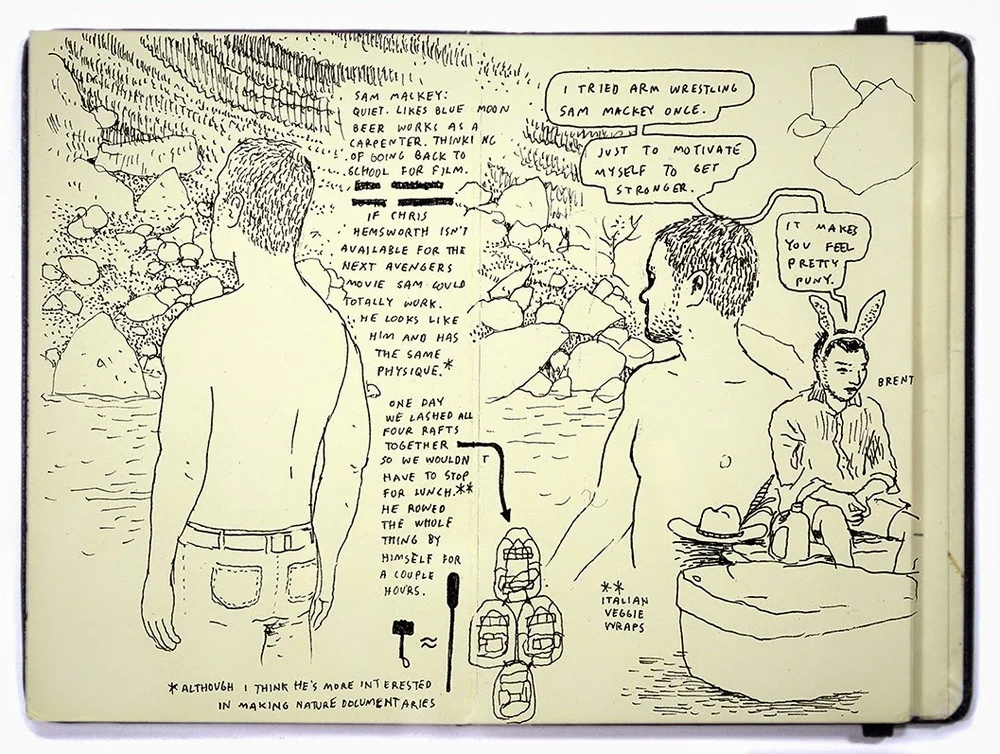 SAM MACKEY:
QUIET. LIKES BLUE MOON
BEER WORKS AS A
CARPENTER. THINKING
OF GOING BACK TO
SCHOOL FOR FILM.
IF CHRIS
HEMSWORTH ISN'T
AVAILABLE FOR THE
NEXT AVENGERS
MOVIE SAM COULD
TOTALLY WORK.
HE LOOKS LIKE
HIM AND HAS
THE SAME
PHYSIQUE.*
ONE DAY
WE LASHED ALL
FOUR RAFTS
TOGETHER
SO WE WOULDN'T
HAVE TO STOP
FOR LUNCH.**
HE ROWED
THE WHOLE
THING BY
HIMSELF FOR
A COUPLE
HOURS.
≈
*ALTHOUGH I THINK HE'S MORE INTERESTED
IN MAKING NATURE DOCUMENTARIES
I TRIED ARM WRESTLING
SAM MACKEY ONCE.
JUST TO MOTIVATE
MYSELF TO GET
STRONGER.
IT MAKES
YOU FEEL
PRETTY
PUNY.
BRENT
**
ITALIAN
VEGGIE
WRAPS